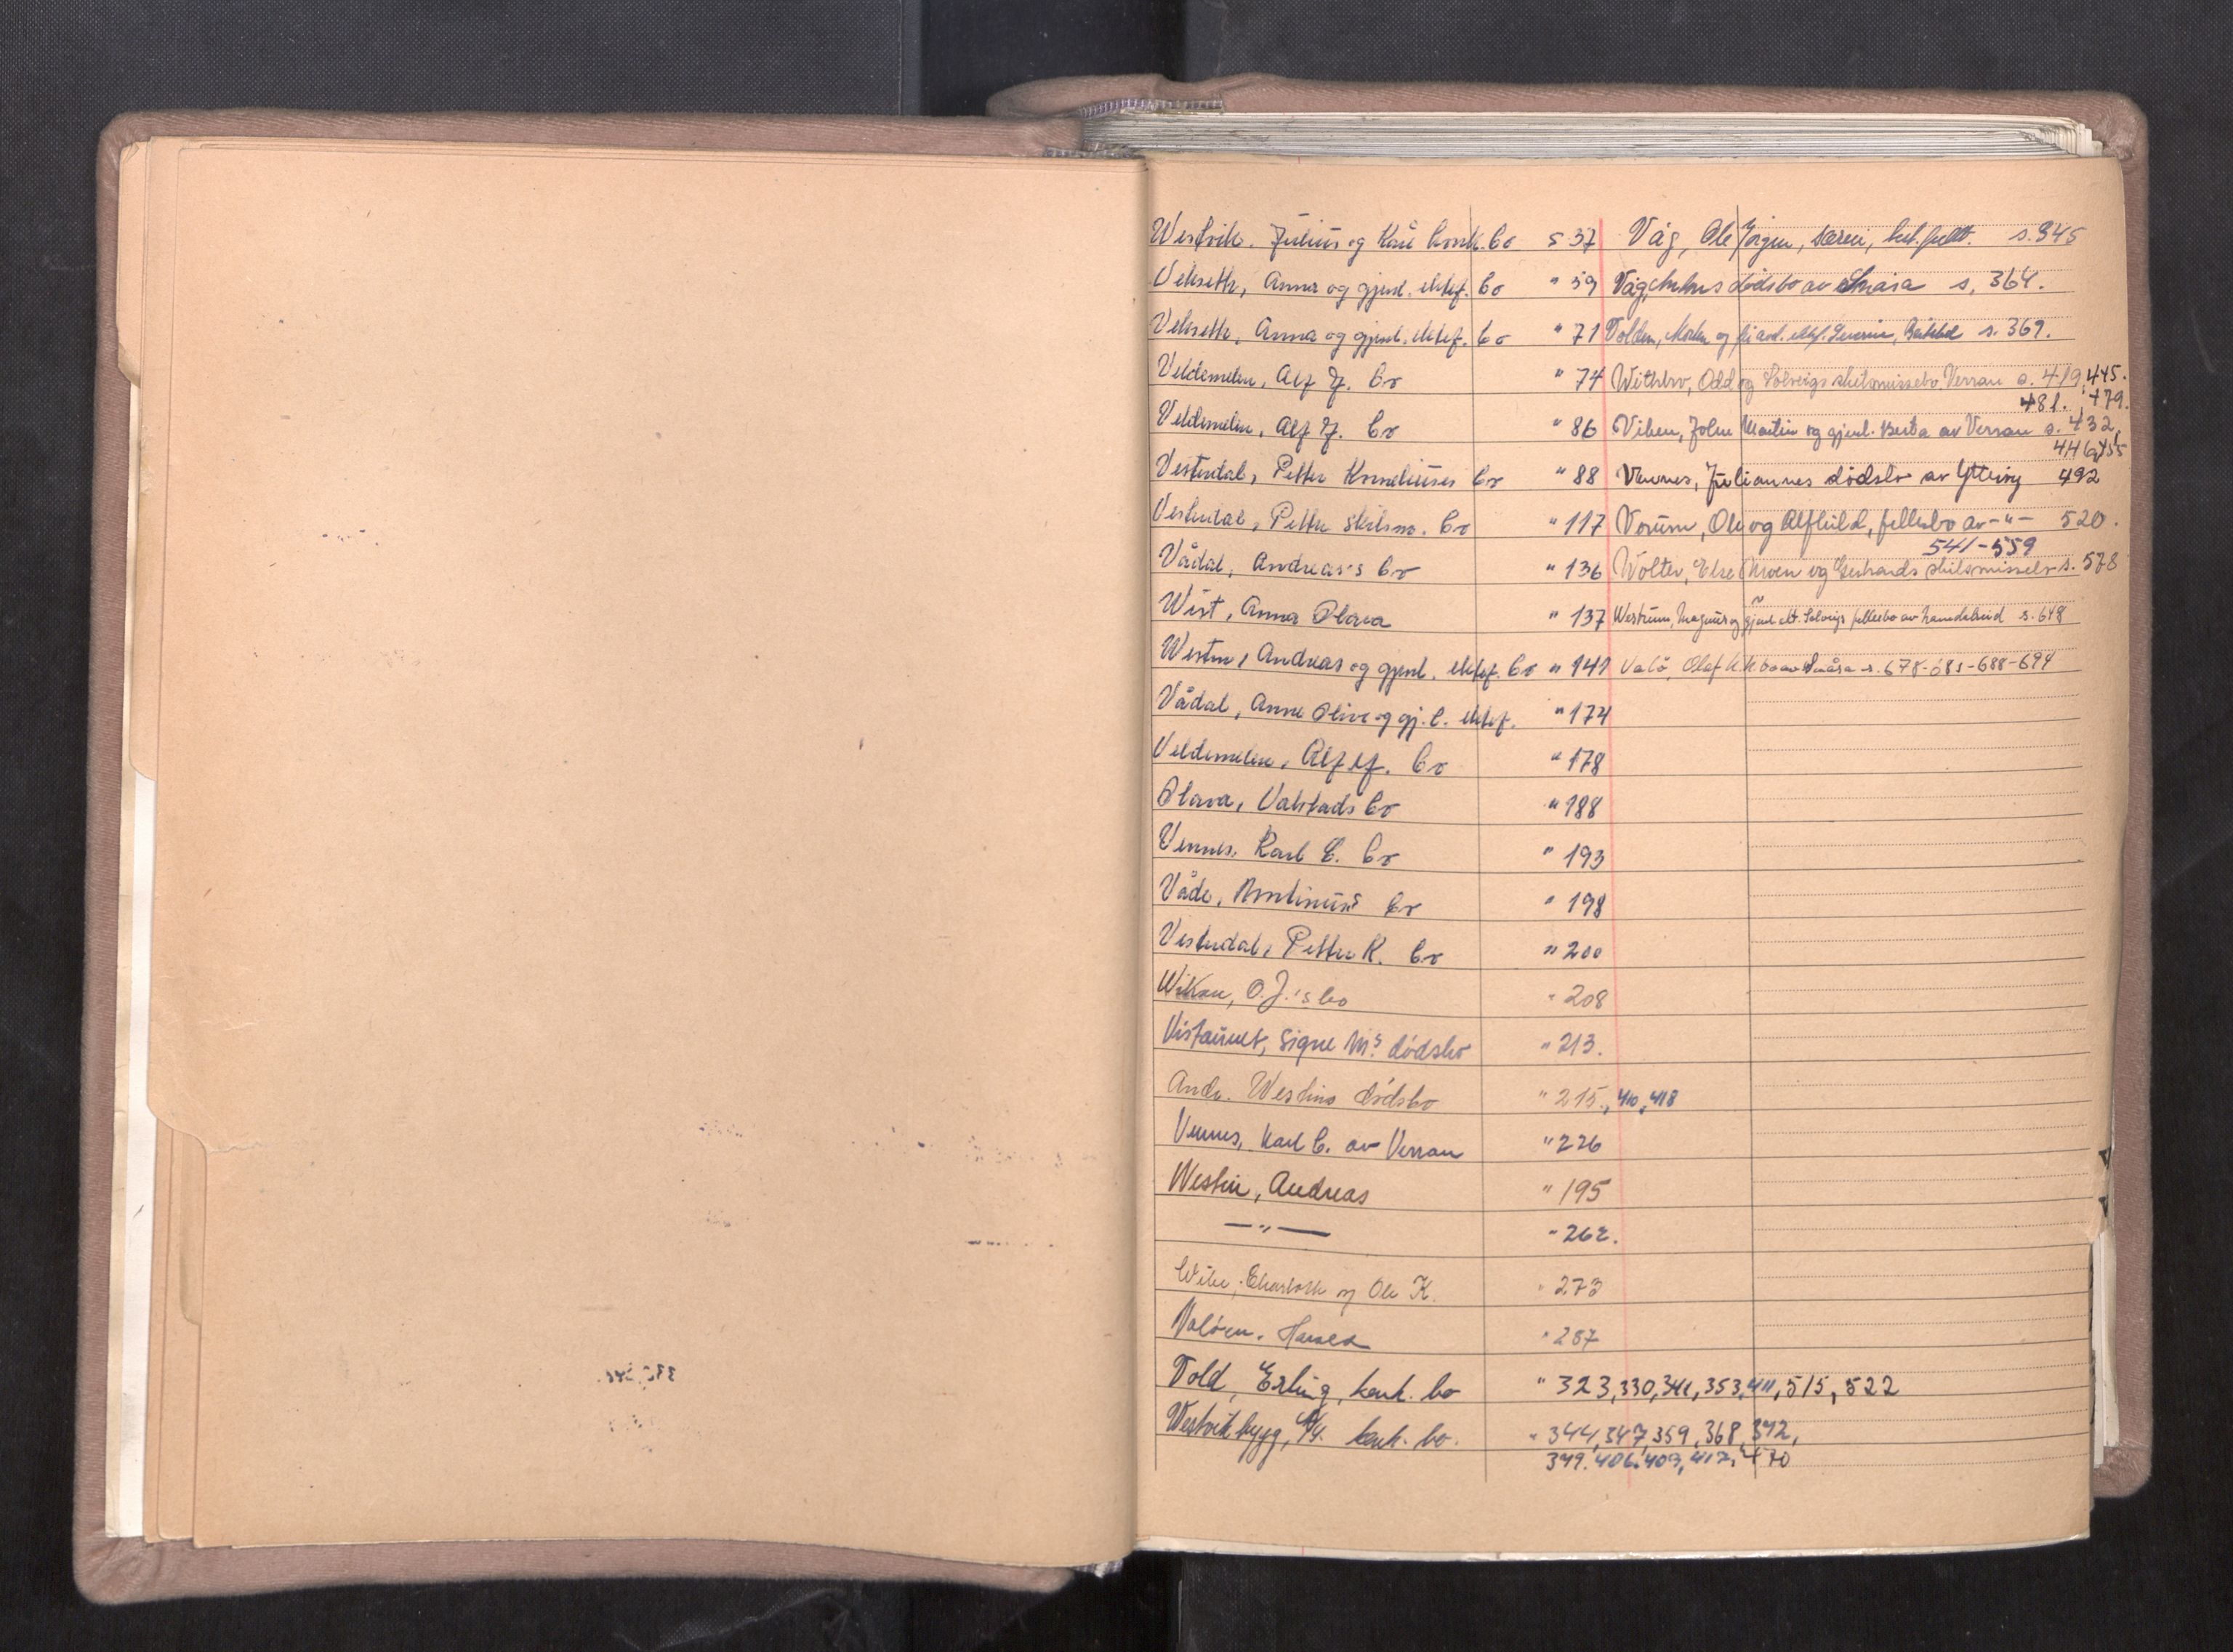 Westvik. Julius og Kari konk. bo s 37
Vekseth, Anna og gjenl. ektef. bo " 59
Vekseth, Anna og gjenl. ektef. bo " 71
Veldemelen, Alf J. bo " 74
Veldemelen, Alf J. bo " 86
Vesterdal, Petter Korneliuses bo " 88
Vesterdal, Petter skilsm. bo " 117
Vådal, Andreas's bo " 136
Wist, Anna Olava " 137
Westin, Andreas og gjenl. ektef. bo " 141
Vådal, Anne Olive og gj.l. ektef. " 174
Veldemelen, Alf J. bo " 178
Olava, Valstads bo " 188
Vennes, Karl E. bo " 193
Våde, Martinus's bo " 198
Vesterdal, Petter K. bo " 200
Wikan, O.J.'s bo " 208
Vistaunet, Signe M.s dødsbo " 213.
Andr. Westins dødsbo " 215, 410, 418
Vennes, Karl E. av Verran " 226
Westin, Andreas " 195
—"— " 262.
og Ole K. " 273
Valøen. Harald " 287
Vold, Erling, konk. bo " 323, 330, 341, 353, 411, 515, 522
Westvik bygg, A/S. konk. bo. " 344, 347, 359, 368, 372,
379. 406. 409, 417, 470
Våg, Ole Jørgen, s. 345
Våg, dødsbo av Snåsa s. 364.
Volden, og s. 369.
Withbro, Odd og Solveigs skilsmissebo Verran s. 419, 445.
481. 479.
Viken, John Martin og gjenl. Berta av Verran s. 432,
446, 455
Vennes, Juliannes dødsbo av Ytterøy 492
Vorum, Ole og Alfhild, fellesbo av -"- 520.
541-559
Wolter, Else Moen og Gerhards skilsmissebo s. 578
Westrum, Magnus og gjenl. ekt. Solveigs fellesbo av Namdalseid s. 648
Valø, Olaf K.K. bo av Snåsa s. 678-681-688-694